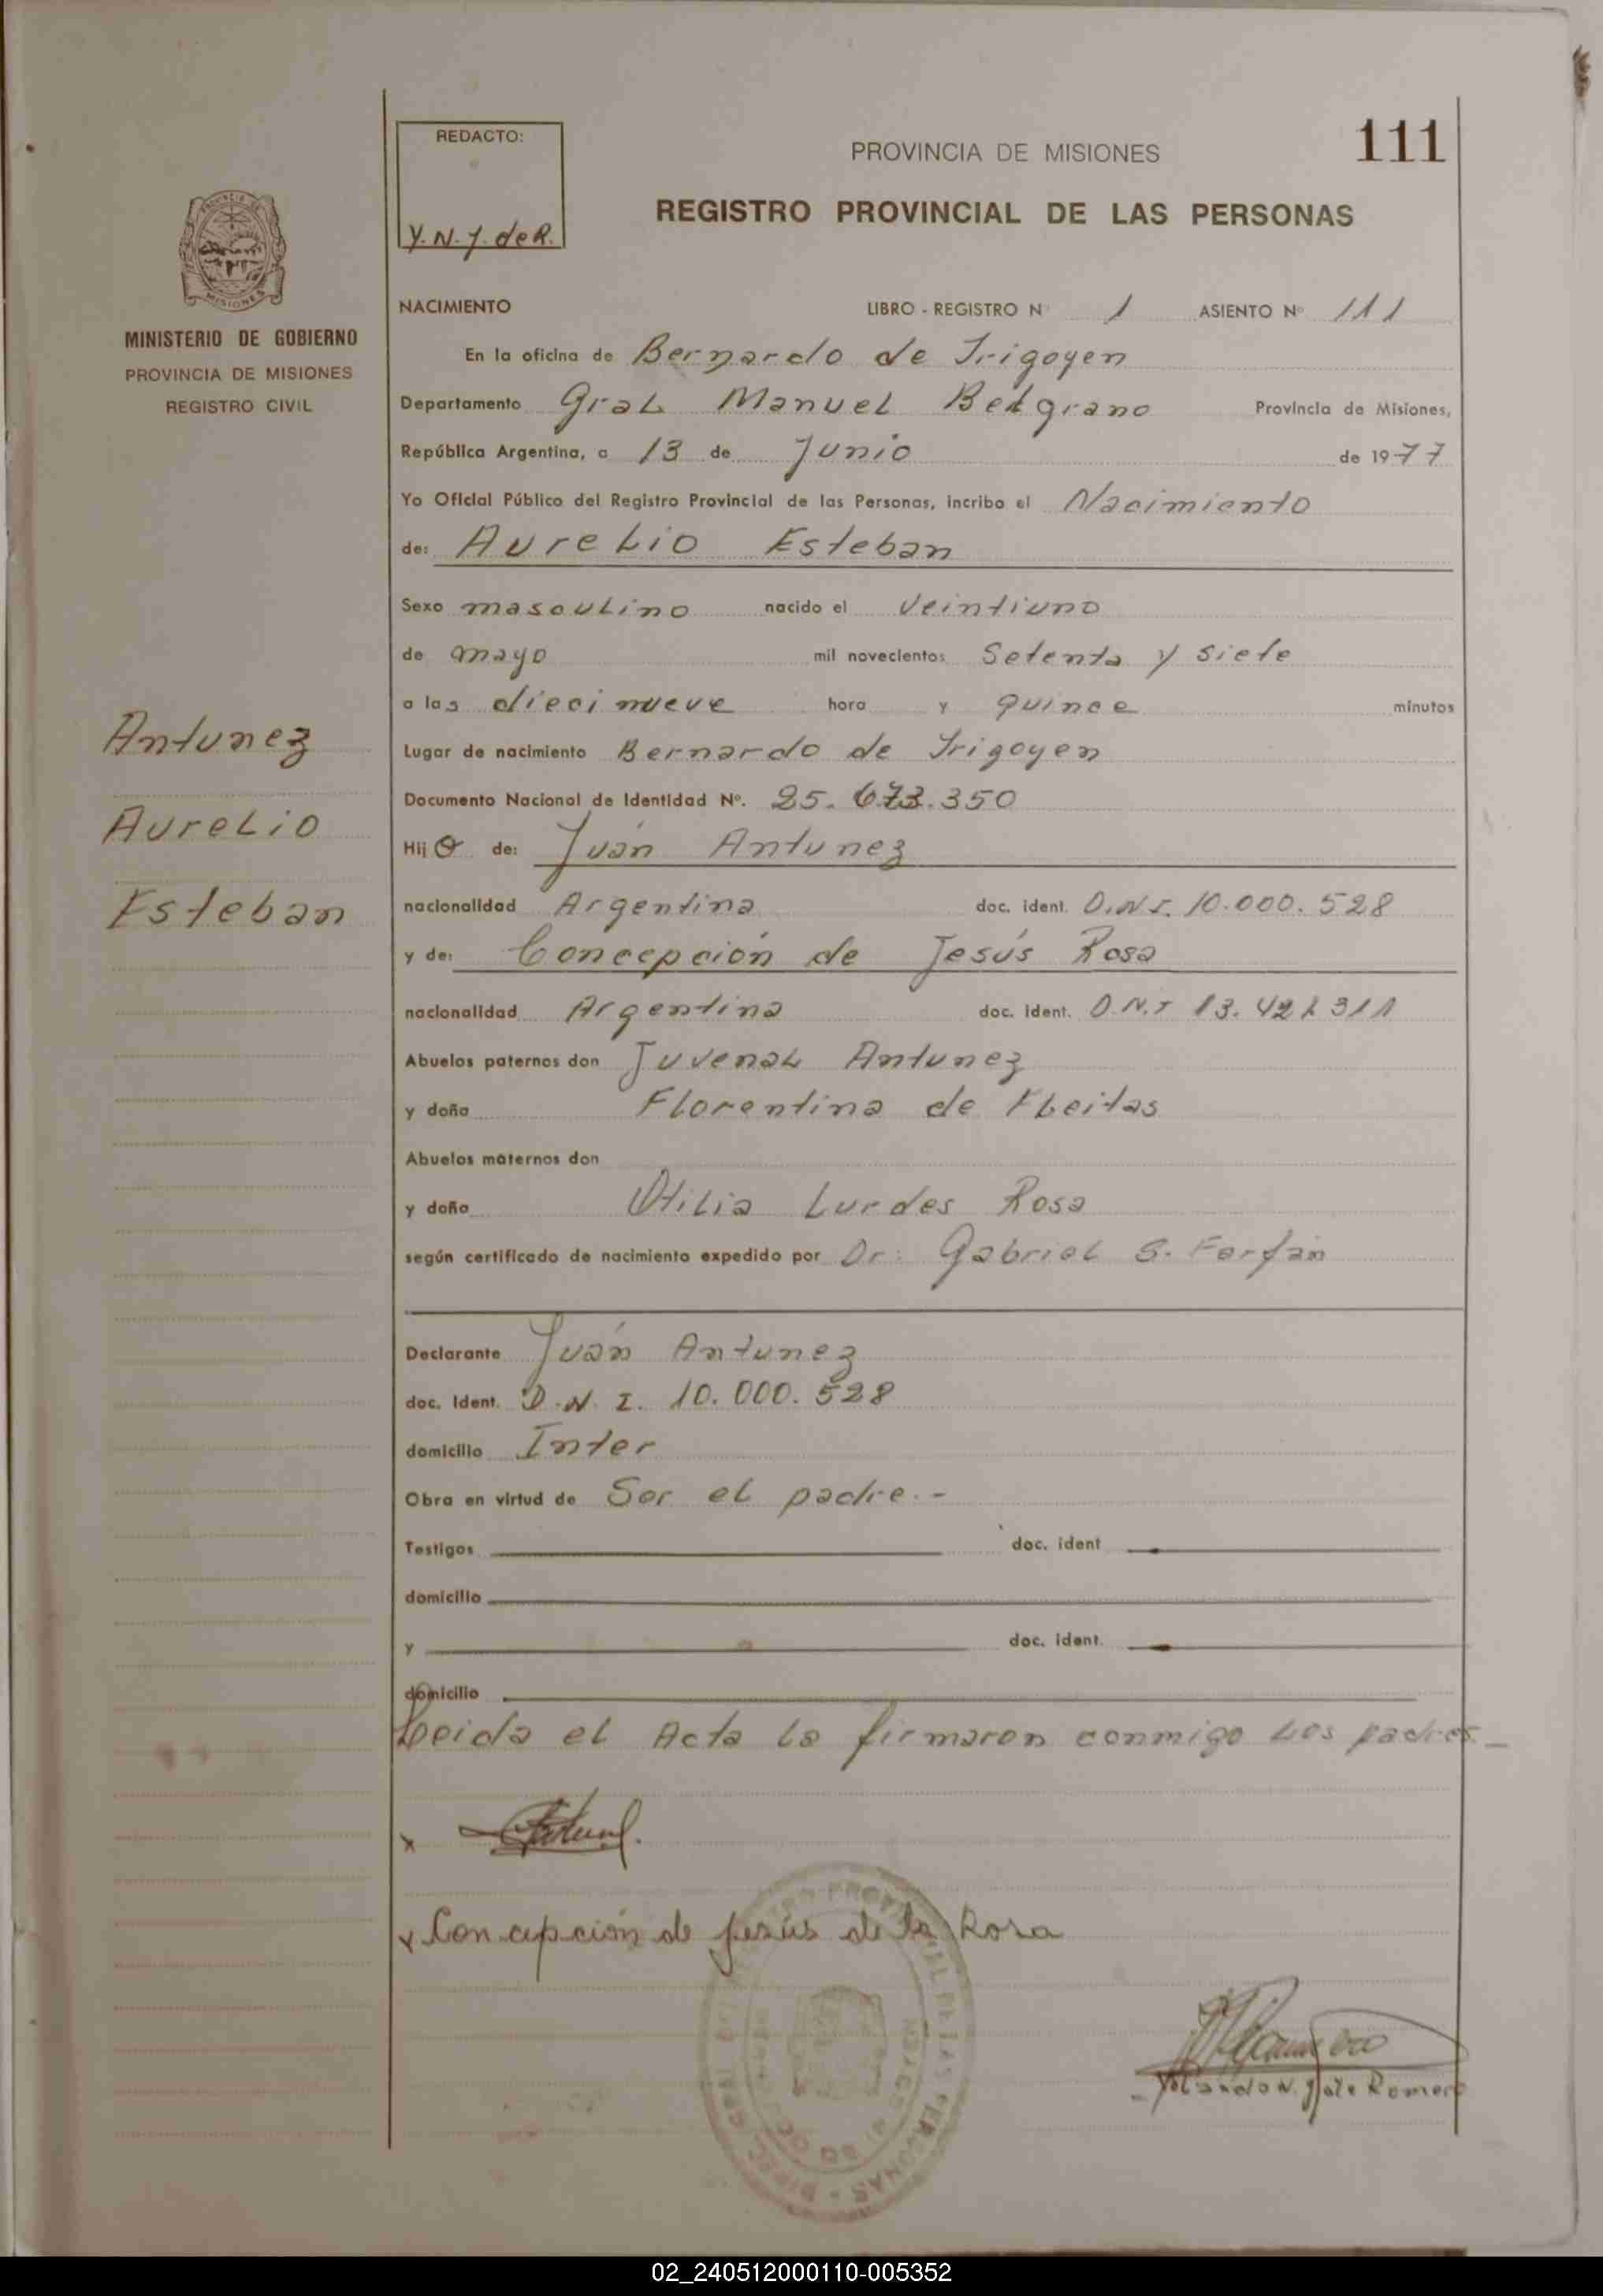 111
REDACTO:
Y. N. J. de R.
PROVINCIA DE MISIONES
REGISTRO PROVINCIAL DE LAS PERSONAS
MINISTERIO DE GOBIERNO
PROVINCIA DE MISIONES
REGISTRO CIVIL
NACIMIENTO LIBRO - REGISTRO Nº 1 ASIENTO Nº 111
En la oficina de Bernardo de Irigoyen
Departamento Gral Manuel Belgrano Provincia de Misiones,
República Argentina, a 13 de Junio de 1977
Yo Oficial Público del Registro Provincial de las Personas, incribo el Nacimiento
de: Aurelio Esteban
Sexo masculino nacido el veintiuno
de mayo mil novecientos Setenta y siete
a las diecinueve hora y quince minutos
Antunez
Aurelio
Esteban
Lugar de nacimiento Bernardo de Irigoyen
Documento Nacional de Identidad Nº. 25.673.350
Hijo de: Juán Antunez
nacionalidad Argentina doc. ident. D.N.I. 10.000.528
y de: Concepción de Jesús Rosa
nacionalidad Argentina doc. ident. D.N.I 13.421311
Abuelos paternos don Juvenal Antunez
y doña Florentina de Fleitas
Abuelos maternos don
y doña Otilia Lurdes Rosa
según certificado de nacimiento expedido por Dr: Gabriel S. Farfán
Declarante Juán Antunez
doc. ident. D.N.I. 10.000.528
domicilio Inter
Obra en virtud de Ser el padre.-
Testigos doc. ident
domicilio
y doc. ident.
domicilio
Leida el Acta la firmaron conmigo los padres.-
x
x Concepción de Jesús de la Rosa
Romero
02_240512000110-005352